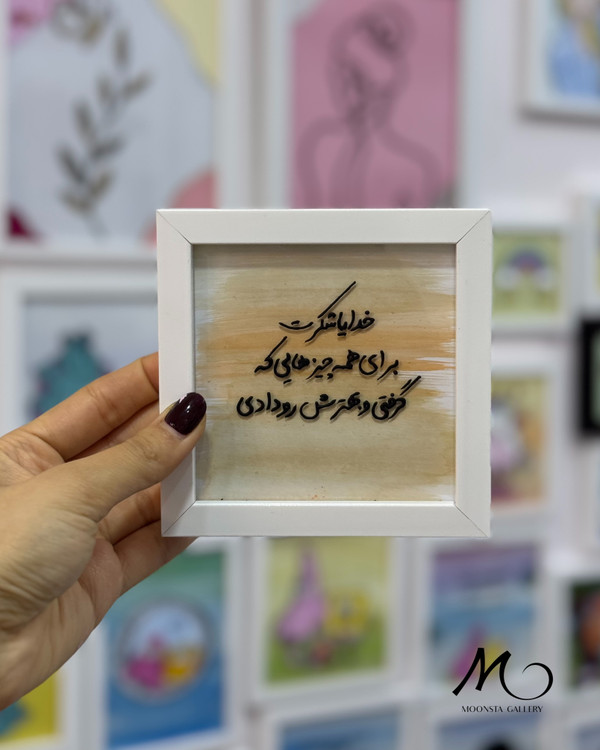 خدایا شکرت
برای همه چیز هایی که
گرفتی و بهترش رو دادی
MOONSTA GALLERY